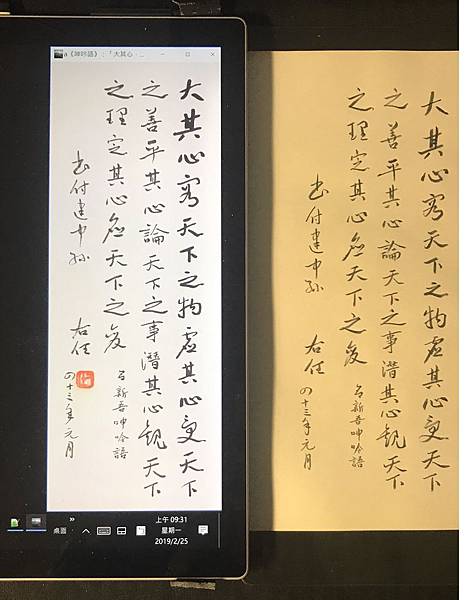 a《呻吟語》:「大其心
大其心容天下之物虛其心受天下
之善平其心論天下之事潛其心觀天下
之理定其心應天下之變
呂新吾呻吟語
書付建中孫 右任
四十三年元月
桌面
上午 09:31
星期一
2019/2/25
大其心容天下之物虛其心受天下
之善平其心論天下之事潛其心觀天下
之理定其心應天下之變
呂新吾呻吟語
書付建中孫 右任
四十三年元月